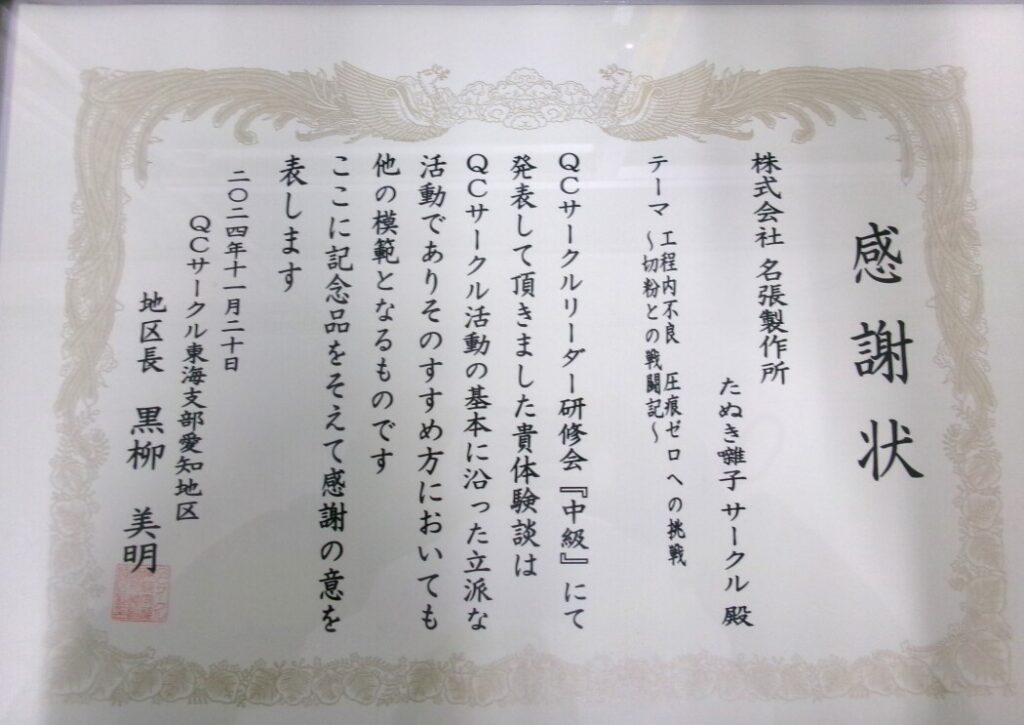 感謝状
株式会社 名張製作所
たぬき囃子サークル殿
テーマ 工程内不良 圧痕ゼロへの挑戦
～切粉との戦闘記～
QCサークルリーダー研修会『中級』にて
発表して頂きました貴体験談は
QCサークル活動の基本に沿った立派な
活動でありそのすすめ方においても
他の模範となるものです
ここに記念品をそえて感謝の意を
表します
二〇二四年十一月二十日
QCサークル東海支部愛知地区
地区長 黒柳 美明